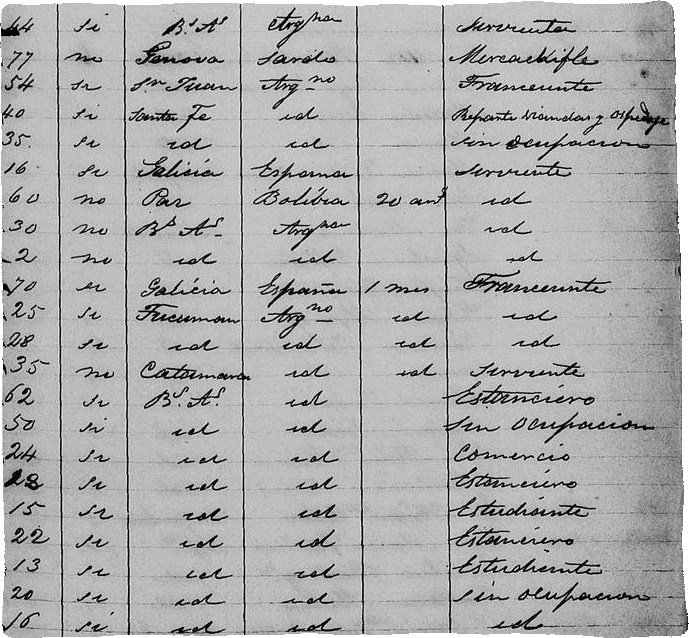 44 si Bs As Argna Sirvienta
77 no Genova Sardo Mercachifle
54 si Sn Juan Argno Franceunte
40 si Santa Fe id Reparte viandas y ospedaje
35 si id id sin ocupacion
16 si Galicia Espana sirviente
60 no Paz Bolibia 20 ans id
30 no Bs As Argna id
2 no id id id
70 si Galicia España 1 mes Franceunte
25 si Tucuman Argno id id
28 si id id id id
35 no Catamarca id id Sirviente
62 si Bs As id Estanciero
50 si id id Sin Ocupacion
24 si id id Comercio
28 si id id Estanciero
15 si id id Estudiante
22 si id id Estanciero
13 si id id Estudiente
20 si id id sin ocupacion
16 si id id id